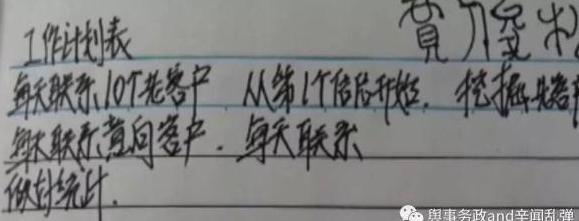 工作计划表
每天联系10个老客户 从第1个信后开始. 挖掘老客
每天联系意向客户. 每天联系
做好统计.
與事务政and辛闻乱弹